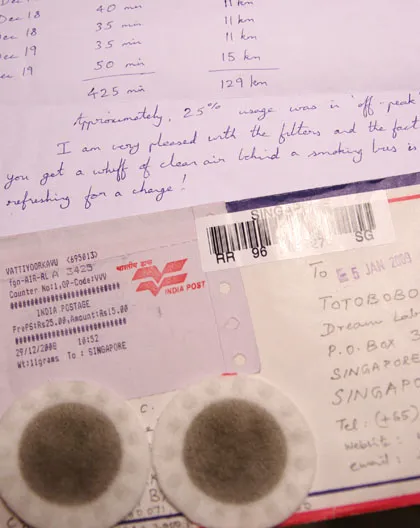 40 min 11 km
Dec 18 35 min 11 km
Dec 19 35 min 11 km
Dec 19 50 min 15 km
425 min 129 km
Approximately, 25% usage was in 'off-peak'
I am very pleased with the filters and the fact
you get a whiff of clean air behind a smoking bus is
refreshing for a change!
VATTIYOORKAVU (695013)
Counter No:1,OP-Code:VVV
INDIA POSTAGE
Amount:Rs15.00
29/12/2008 10:52
Wt:11grams To : SINGAPORE
भारतीय डाक
INDIA POST
SINGAPORE
RR 96 27 SG
To 5 JAN 2009
TOTOBOBO
Dream
P.O. Box 3
SINGAPORE
SINGAPO
Tel : (+65)
Website :
email :